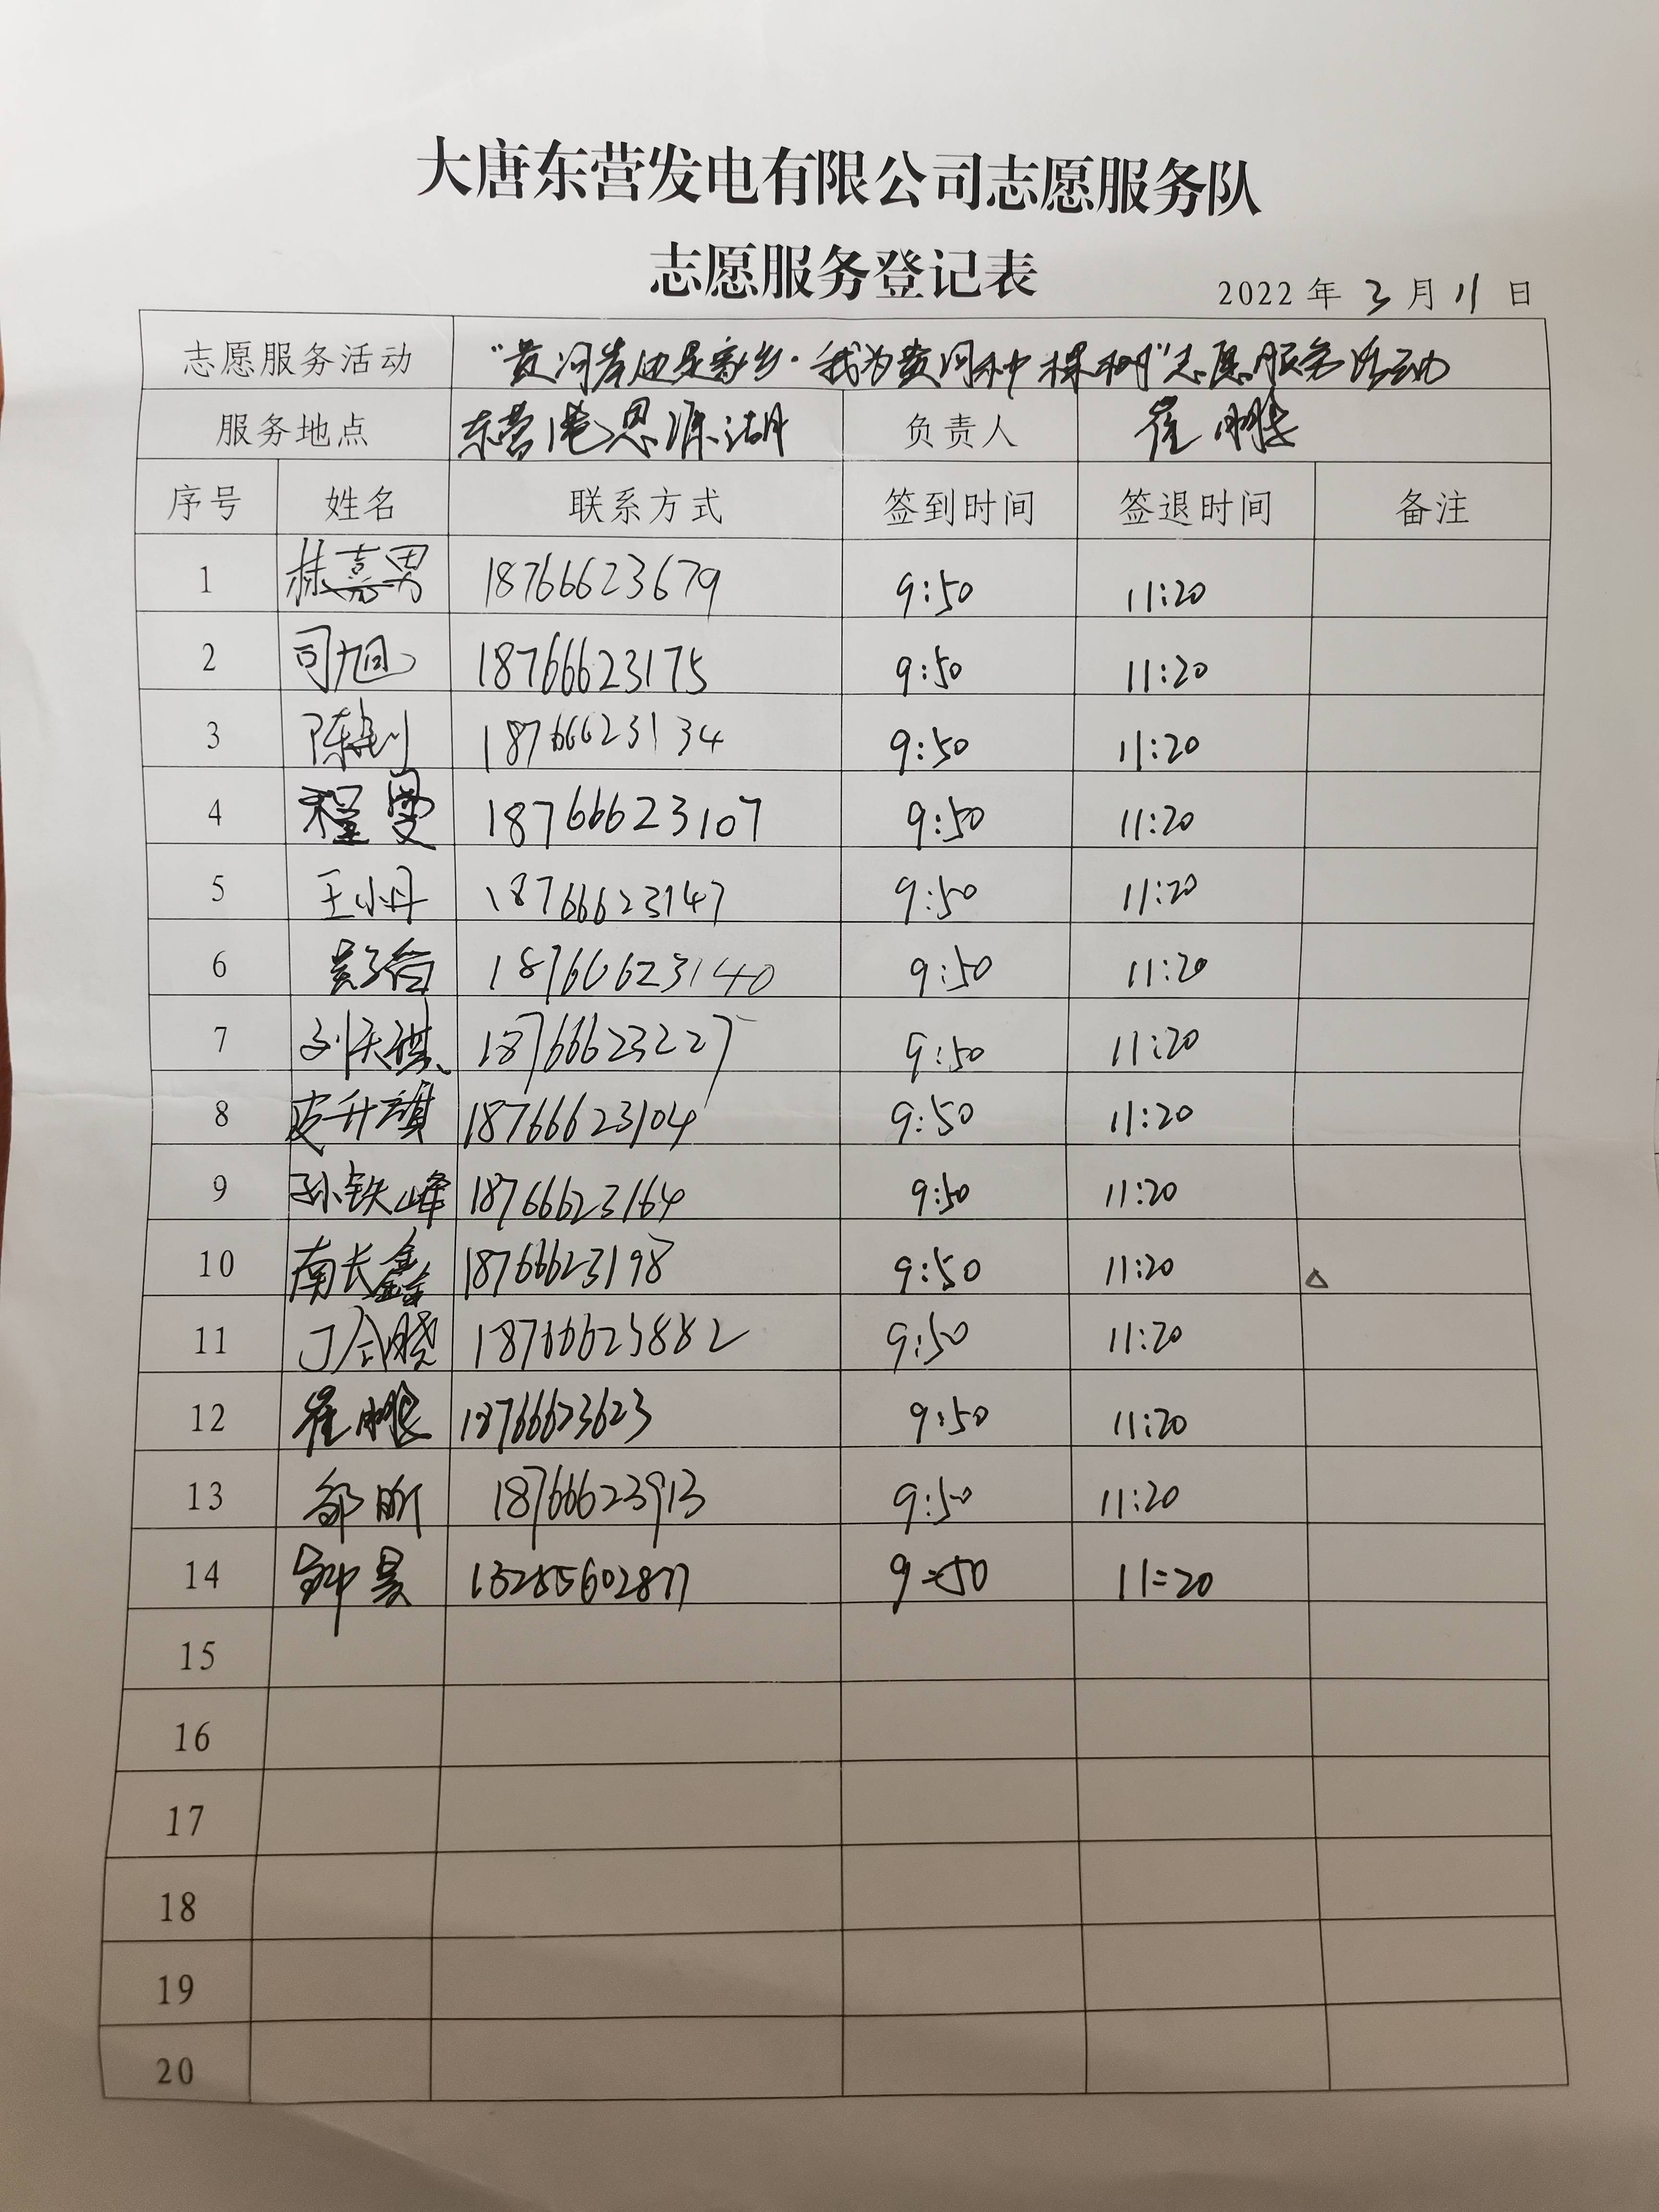 大唐东营发电有限公司志愿服务队
志愿服务登记表
2022年3月11日
志愿服务活动 "黄河岸边是家乡·我为黄河种棵树"志愿服务活动
服务地点 东营港恩源湖 负责人 崔鹏
序号 姓名 联系方式 签到时间 签退时间 备注
1 林嘉男 18766623679 9:50 11:20
2 司旭 18766623175 9:50 11:20
3 陈 18766623134 9:50 11:20
4 程曼 18766623107 9:50 11:20
5 王小丹 18766623147 9:50 11:20
6 18766623140 9:50 11:20
7 刘天祺 18766623227 9:50 11:20
8 皮升旗 18766623104 9:50 11:20
9 孙铁峰 18766623164 9:50 11:20
10 南长鑫 18766623198 9:50 11:20
11 丁 18766623882 9:50 11:20
12 崔鹏 18766623623 9:50 11:20
13 邹昕 18766623913 9:50 11:20
14 钟昊 13285602877 9:50 11:20
15
16
17
18
19
20